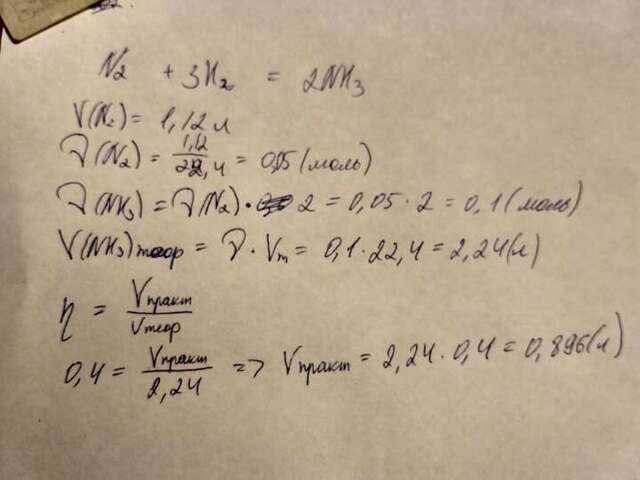 N₂ + 3H₂ = 2NH₃
V(N₂) = 1,12 л
ν(N₂) = 1,12/22,4 = 0,05 (моль)
ν(NH₃) = ν(N₂) · 2 = 0,05 · 2 = 0,1 (моль)
V(NH₃)теор = ν · Vm = 0,1 · 22,4 = 2,24 (л)
η = Vпракт/Vтеор
0,4 = Vпракт/2,24 => Vпракт = 2,24 · 0,4 = 0,896 (л)